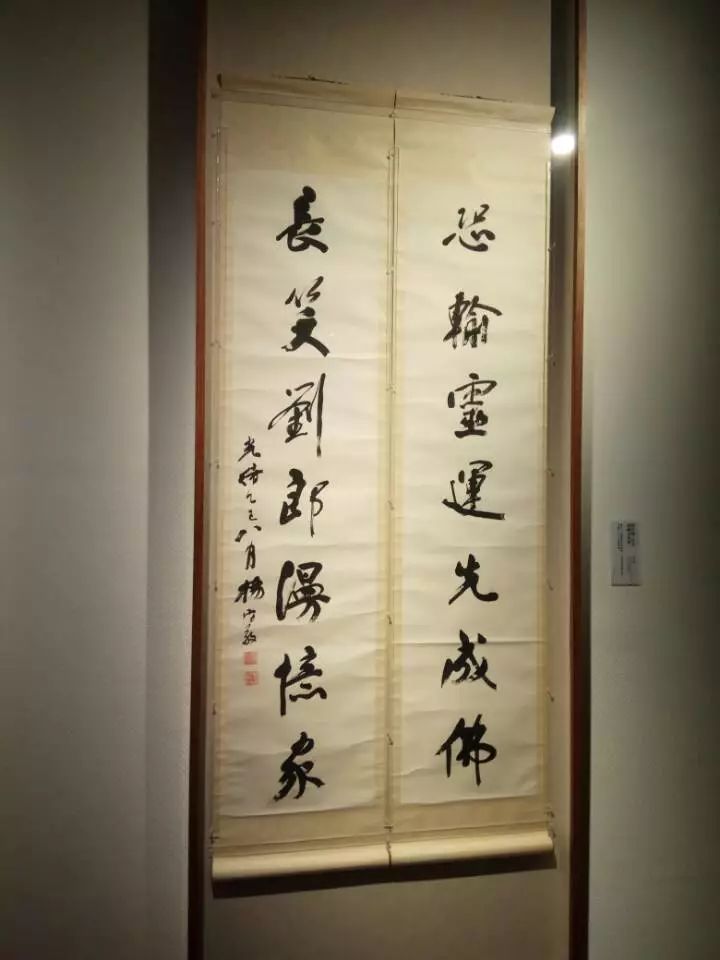 恐輸靈運先成佛
長笑劉郎漫憶家
光緒乙巳八月楊守敬